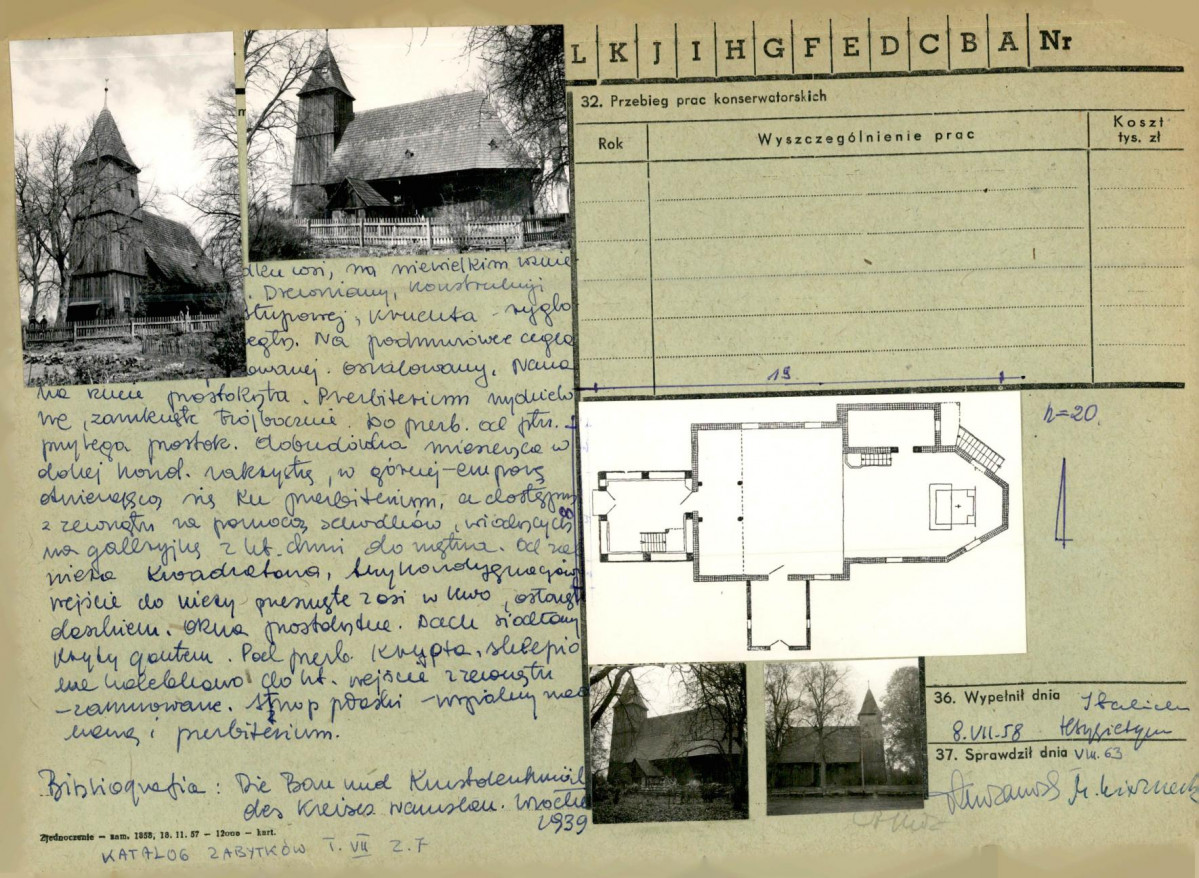 L K J I H G F E D C B A Nr
32. Przebieg prac konserwatorskich
Rok
Wyszczególnienie prac
Koszt
tys. zł
m
dku wsi, na niewielkim wznie
. Drewniany, konstrukcji
słupowej, kruchta - ryglo
cegły. Na podmurówce cegla
owanej. oszalowany. Nawa
na rzucie prostokąta. Prezbiterium wydzielo
ne, zamknięte trójbocznie. Do prezb. od płn.
przylega prostok. dobudówka mieszcząca w
dolnej kond. zakrystię, w górnej - emporę
otwierającą się ku prezbiterium, a dostępną
z zewnątrz za pomocą schodków, wiodących
na galeryjkę z kt. drzwi do wnętrza. Od zach
wieża kwadratowa, trzykondygnacjowa
wejście do wieży przesunięte z osi w lewo, osłonięte
daszkiem. Okna prostokątne. Dach siodłowy
kryty gontem. Pod prezb. krypta, sklepio
na kolebkowo do kt. wejście z zewnątrz
- zamurowane. Strop płaski - wspólny nad
nawą i prezbiterium.
Bibliografia: Die Bau und Kunstdenkmäl
des Kreises Namslau. Wrocław
1939
Zjednoczenie — zam. 1858, 18. 11. 57 — 12000 — kart.
KATALOG ZABYTKÓW T. VII Z. 7
19
8
h=20
36. Wypełnił dnia
8. VII. 58
37. Sprawdził dnia VIII. 63